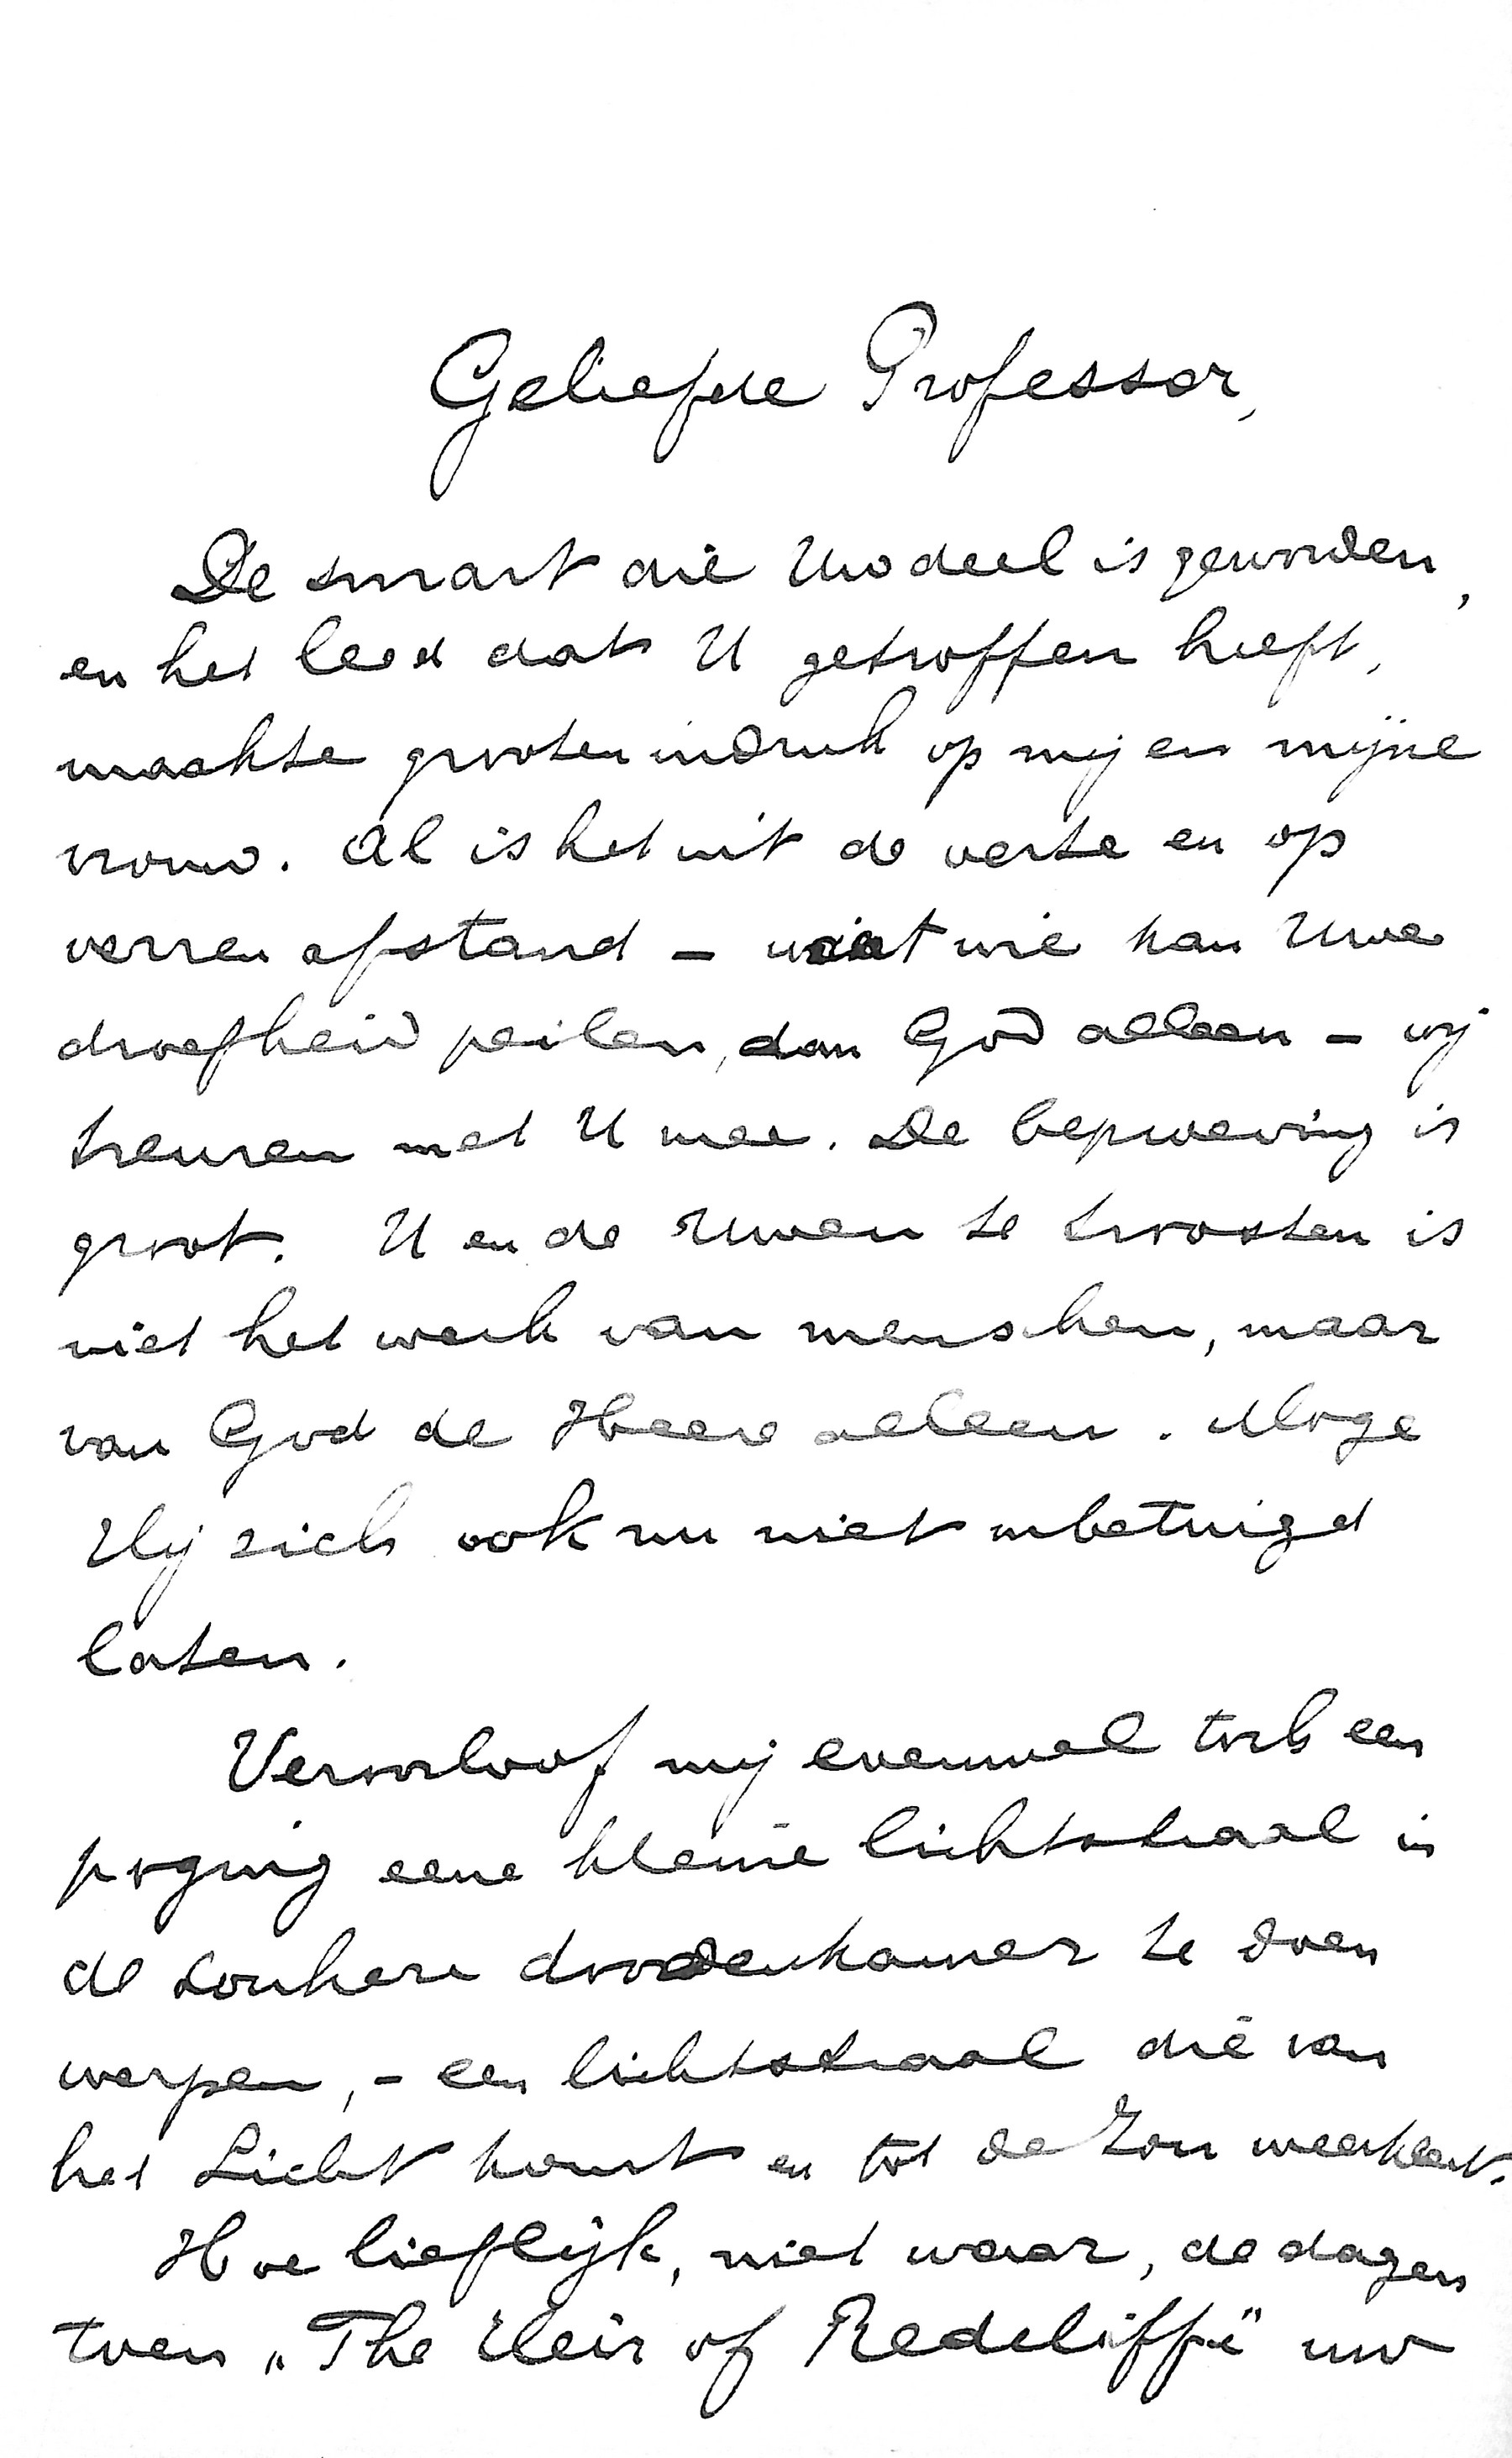 Geliefde Professor,
De smart die Uw deel is geworden,
en het leed dat U getroffen heeft,
maakte grooten indruk op mij en mijne
vrouw. Al is het uit de verte en op
verren afstand – want wie kan Uwe
droefheid peilen, dan God alleen – wij
treuren met U mee. De beproeving is
groot. U en de Uwen te troosten is
niet het werk van menschen, maar
van God de Heere alleen. Moge
Hij zich ook nu niet onbetuigd
laten.
Veroorloof mij evenwel toch een
poging eene kleine lichtstraal in
de donkere doodenkamer te doen
werpen, – een lichtstraal die van
het Licht komt en tot de Zon weerkeert.
Hoe lieflijk, niet waar, de dagen
toen „The Heir of Redcliffe" uw